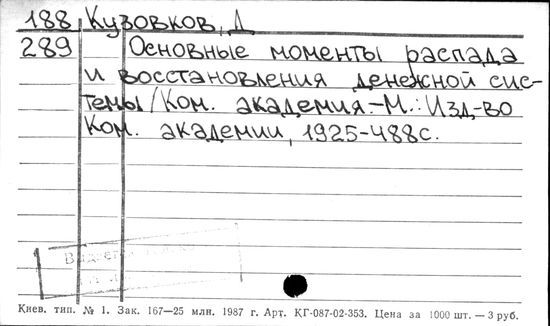 188 Кузовков, Д
289 Основные моменты распада
и восстановления денежной сис-
темы/Ком. академия.-М.: Изд-во
Ком. академии, 1925-488с.
Киев. тип. № 1. Зак. 167—25 млн. 1987 г. Арт. КГ-087-02-353. Цена за 1000 шт. — 3 руб.